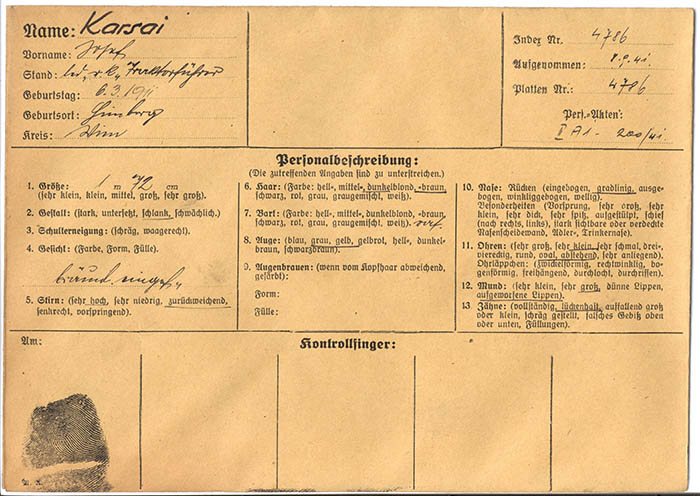 Name: Karsai
Vorname: Josef
Stand: led, r.k, Traktorführer
Geburtstag: 6.3.1911
Geburtsort: Himberg
Kreis: Wien
Index Nr. 4786
Aufgenommen: 8.9.41.
Platten Nr. 4786
Pers.-Akten:
II A1- 200/41
Personalbeschreibung:
(Die zutreffenden Angaben sind zu unterstreichen.)
1. Größe: 1 m 72 cm
(sehr klein, klein, mittel, groß, sehr groß).
2. Gestalt: (stark, untersetzt, schlank, schwächlich).
3. Schulterneigung: (schräg, waagerecht).
4. Gesicht: (Farbe, Form, Fülle).
5. Stirn: (sehr hoch, sehr niedrig, zurückweichend,
senkrecht, vorspringend).
6. Haar: (Farbe: hell-, mittel-, dunkelblond, -braun,
schwarz, rot, grau, graugemischt, weiß).
7. Bart: (Farbe: hell-, mittel-, dunkelblond, -braun,
schwarz, rot, grau, graugemischt, weiß).
8. Auge: (blau, grau, gelb, gelbrot, hell-, dunkel-
braun, schwarzbraun).
9. Augenbrauen: (wenn vom Kopfhaar abweichend,
gefärbt):
Form:
Fülle:
10. Nase: Rücken (eingebogen, gradlinig, ausge-
bogen, winkliggebogen, wellig).
Besonderheiten (Vorsprung, sehr groß, sehr
klein, sehr dick, sehr spitz, aufgestülpt, schief
(nach rechts, links), stark sichtbare oder verdeckte
Nasenscheidewand, Adler-, Trinkernase).
11. Ohren: (sehr groß, sehr klein, sehr schmal, drei-,
viereckig, rund, oval, abstehend, sehr anliegend).
Ohrläppchen: (zwickelförmig, rechtwinklig, bo-
genförmig, freihängend, durchlocht, durchrissen).
12. Mund: (sehr klein, sehr groß, dünne Lippen,
aufgeworfene Lippen).
13. Zähne: (vollständig, lückenhaft, auffallend groß
oder klein, schräg gestellt, falsches Gebiß oben
oder unten, Füllungen).
Am:
Kontrollfinger: